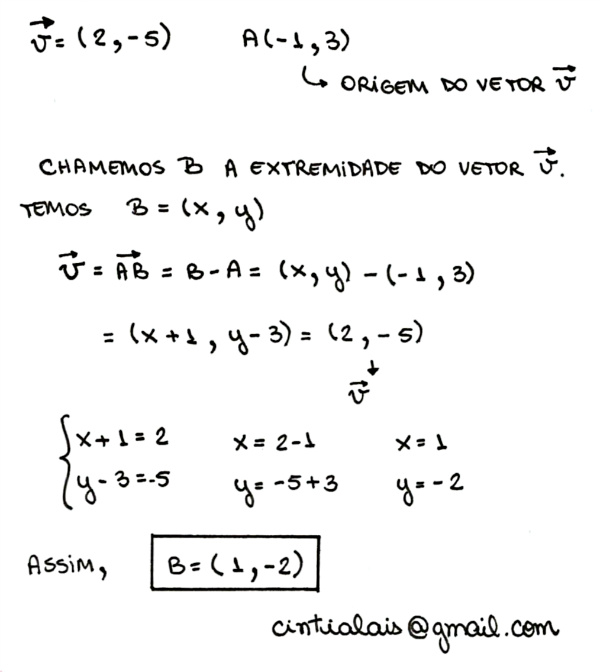 v⃗ = (2, -5) A(-1, 3)
↳ ORIGEM DO VETOR v⃗
CHAMEMOS B A EXTREMIDADE DO VETOR v⃗.
TEMOS B = (x, y)
v⃗ = AB⃗ = B - A = (x, y) - (-1, 3)
= (x + 1, y - 3) = (2, -5)
↓
v⃗
{ x + 1 = 2 x = 2 - 1 x = 1
y - 3 = -5 y = -5 + 3 y = -2
ASSIM, B = (1, -2)
cintialais@gmail.com